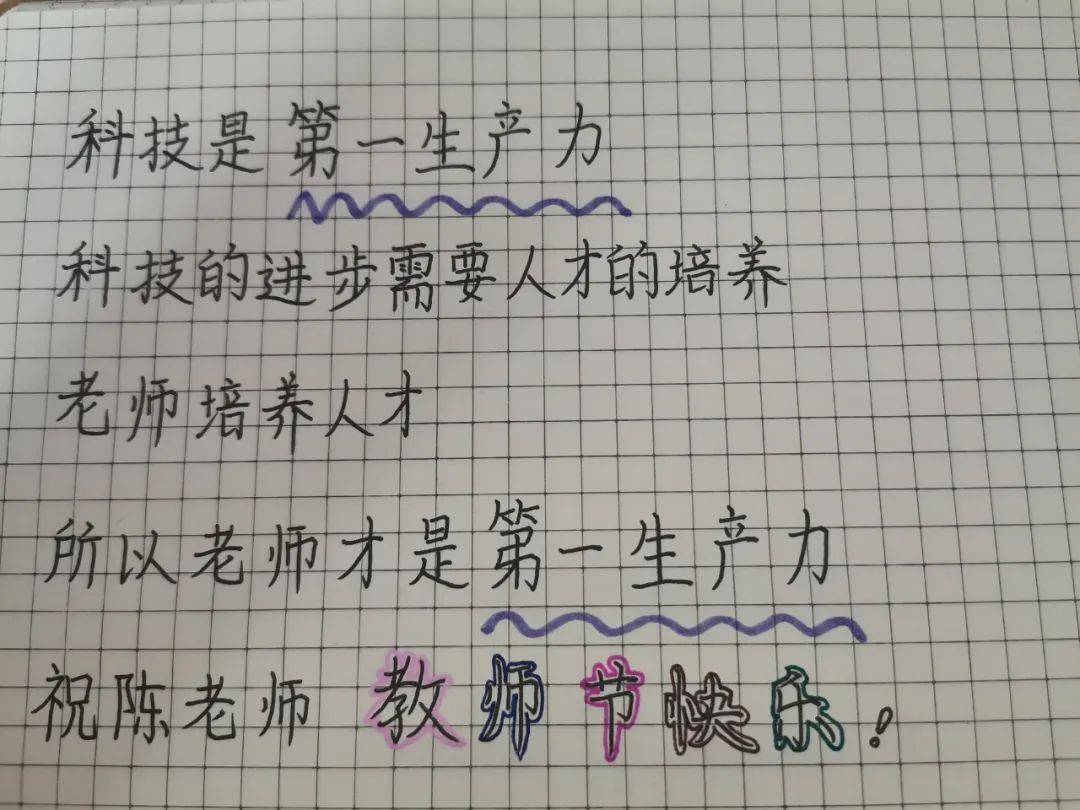 科技是第一生产力
科技的进步需要人才的培养
老师培养人才
所以老师才是第一生产力
祝陈老师 教师节快乐!